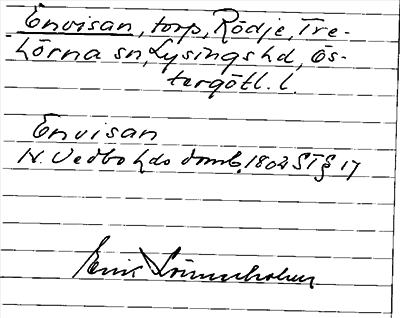 Envisan, torp, Rödje, Tre-
hörna sn, Lysings hd, Ös-
tergötl. l.
Envisan
N. Vedbo hds domb. 1802 ST § 17